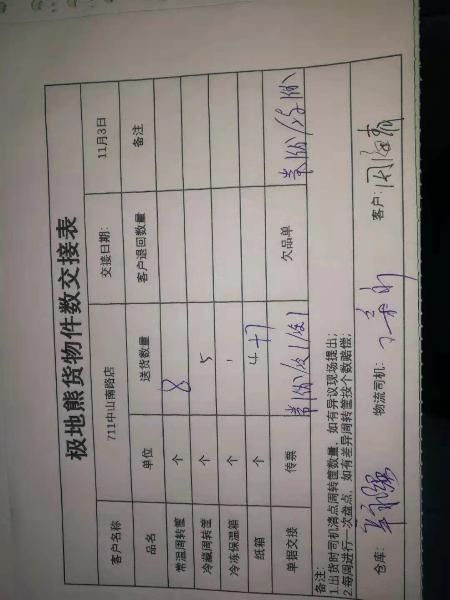 极地熊货物件数交接表
客户名称 711中山南路店 交接日期: 11月3日
品名 单位 送货数量 客户退回数量 备注
常温周转筐 个 8
冷藏周转筐 个 5
冷冻保温箱 个
纸箱 个 4
单据交接 传票 欠品单
备注:
1.出货时司机清点周转筐数量,如有异议现场提出;
2.每周进行一次盘点,如有差异周转筐按个数赔偿;
仓库: 物流司机: 客户: